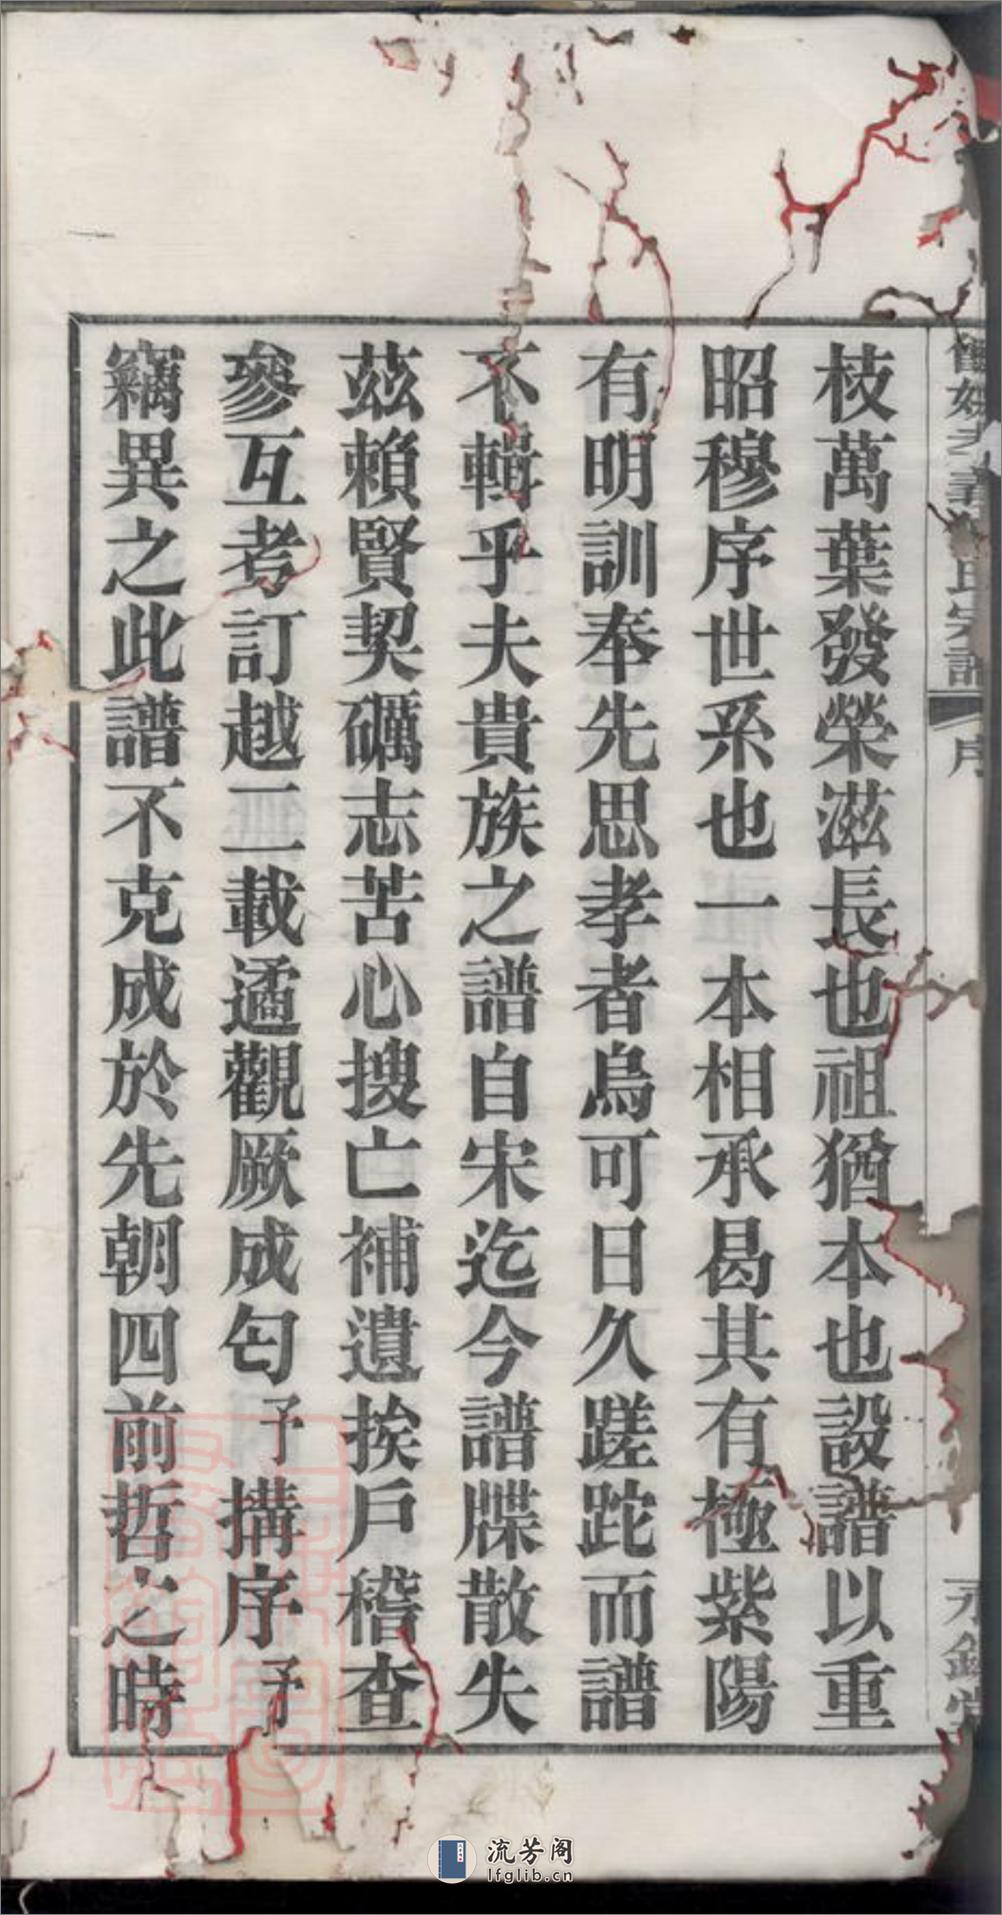 枝萬葉發榮滋長也祖猶本也設譜以重
昭穆序世系也一本相承曷其有極紫陽
有明訓奉先思孝者烏可日久蹉跎而譜
不輯乎夫貴族之譜自宋迄今譜牒散失
茲賴賢契礪志苦心搜亡補遺挨戶稽查
參互考訂越二載遹觀厥成匄予搆序予
竊異之此譜不克成於先朝四前哲之時
氏宗譜
序
流芳阁
lfglib.cn